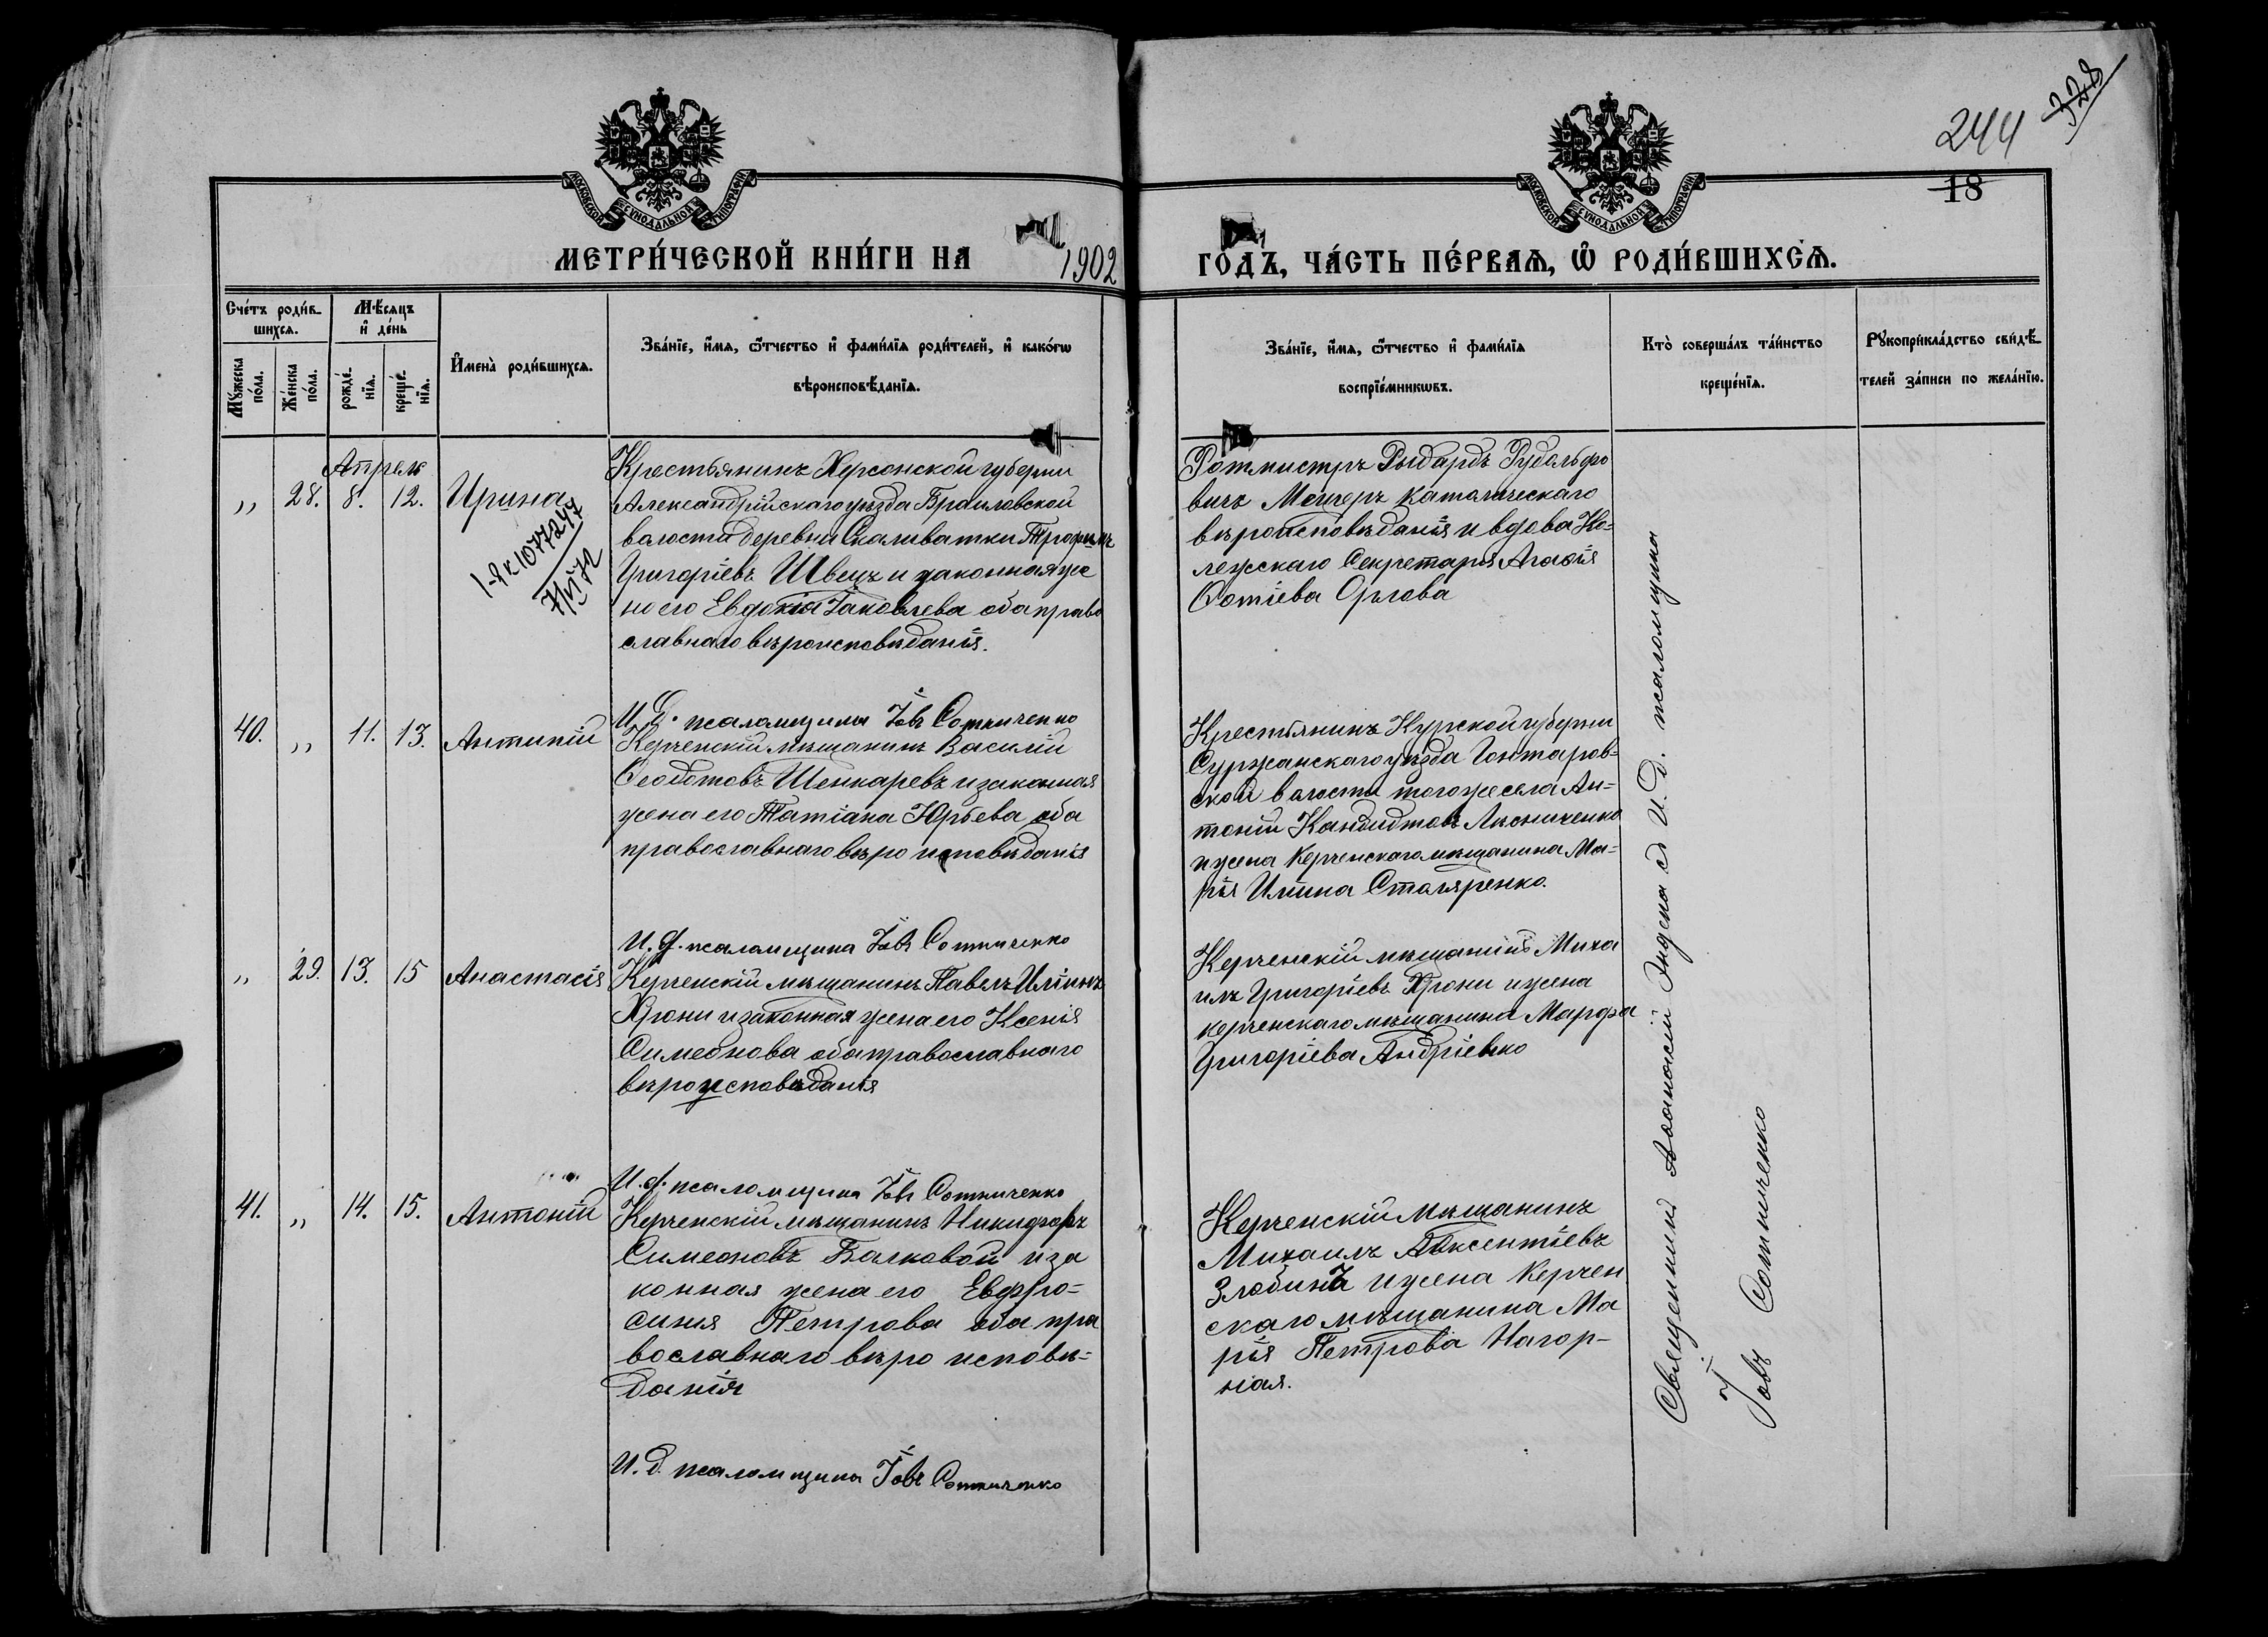 244 328
18
МОСКОВСКОЙ СѴНОДАЛЬНОЙ ТИПОГРАФІИ
МОСКОВСКОЙ СѴНОДАЛЬНОЙ ТИПОГРАФІИ
МЕТРИ́ЧЕСКОЙ КНИ́ГИ НА 1902 ГО́ДЪ, ЧА́СТЬ ПЕ́РВАѦ, Ѡ҆ РОДИ́ВШИХСѦ.
Сче́тъ роди́в-
шихсѧ.
Мꙋ́жеска по́ла.
Же́нска по́ла.
Мѣ́сѧцъ
и҆ де́нь
рожде́-
нїѧ.
креще́-
нїѧ.
И҆мена̀ роди́вшихсѧ.
Зва́нїе, и҆́мѧ, ѻ҆́тчество и҆ фами́лїѧ роди́телей, и҆ како́гѡ
вѣроисповѣ́данїѧ.
Зва́нїе, и҆́мѧ, ѻ҆́тчество и҆ фами́лїѧ
воспрїе́мникѡвъ.
Кто̀ соверша́лъ та́инство
креще́нїѧ.
Рꙋкоприкла́дство свидѣ́-
телей за́писи по жела́нїю.
Апрель
„ 28. 8. 12. Ирина
1-ЯК 1077247
Крестьянинъ Херсонской губерніи
Александрійскаго уѣзда Браиловской
волости деревни Скаливатки Трофимъ
Григоріевъ Швецъ и законная же
на его Евдокія Іаковлева оба право
славнаго вѣроисповѣданія.
Ротмистръ Рыдардъ Рудольфо
вичъ католическаго
вѣроисповѣданія и вдова Ко-
лежскаго Секретаря Агаѳія
Ѳотіева Орлова
И. д. псаломщика Іовъ Сотниченко
40. „ 11. 13. Антипій
Керченскій мѣщанинъ Василій
Ѳеодотовъ Шенкаревъ и законная
жена его Татіана Юрьева оба
православнаго вѣроисповѣданія
Крестьянинъ Курской губерніи
Суржанскаго уѣзда Гонтаров-
ской волости того же села Ан-
тоній Кандидтовъ Лисниченко
и жена Керченскаго мѣщанина Ма-
рія Иліина Столяренко.
И. д. псаломщика Іовъ Сотниченко
„ 29. 13. 15 Анастасія
Керченскій мѣщанинъ Павелъ Иліинъ
Хрони и законная жена его Ксенія
Симеонова оба православнаго
вѣроисповѣданія
Керченскій мѣщанинъ Миха
илъ Григоріевъ Хрони и жена
керченскаго мѣщанина Марфа
Григоріева Андріевко
И. д. псаломщика Іовъ Сотниченко
41. „ 14. 15. Антоній
Керченскій мѣщанинъ Никифоръ
Симеоновъ Балковой и за
конная жена его Евфро-
синія Петрова оба пра
вославнаго вѣро исповѣ-
данія
Керченскій мѣщанинъ
Михаилъ Авксентіевъ
Злобинъ и жена Керчен
скаго мѣщанина Ма
рія Петрова Нагор-
ная.
И. д. псаломщика Іовъ Сотниченко
Священникъ Аѳанасій Индека съ И. д. псаломщика
Іовъ Сотниченко